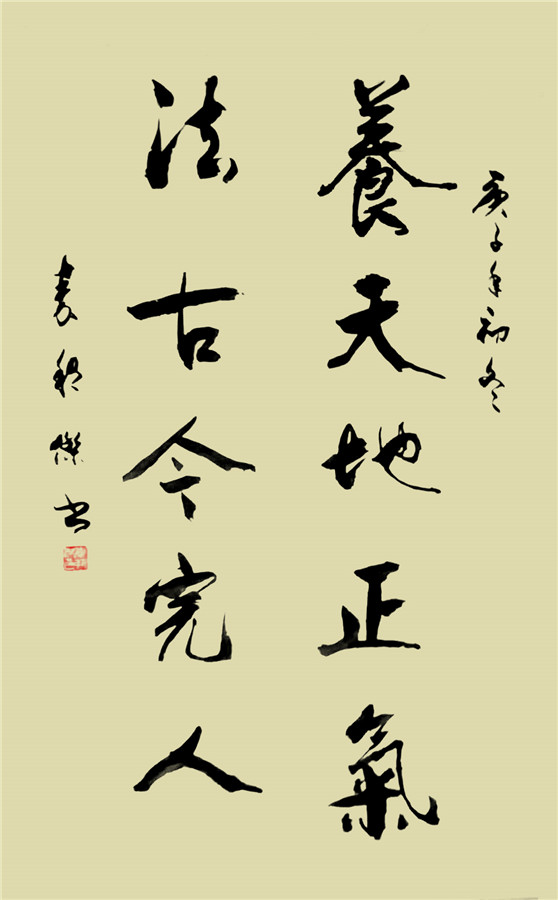 庚子年初冬
養天地正氣
法古今完人
袁利傑书